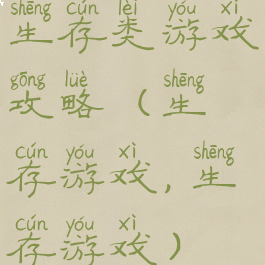 shēng cún lèi yóu xì
生存类游戏
gōng lüè shēng
攻略（生
cún yóu xì shēng
存游戏,生
cún yóu xì
存游戏）